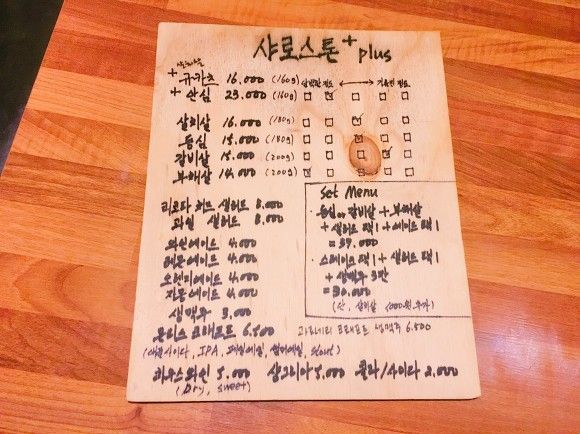 샤로스톤+ plus
+ 규카츠 16.000 (160g)
+ 안심 23.000 (160g)
살치살 16.000 (180g)
등심 15.000 (180g)
갈비살 15.000 (200g)
부채살 14.000 (200g)
리코타 치즈 샐러드 8.000
과일 샐러드 8.000
와인에이드 4.000
레몬에이드 4.000
오렌지에이드 4.000
자몽에이드 4.000
생맥주 3.000
온리스 크래프트 6.500
(애플사이다, IPA, 페일에일, 썸머에일, Stout)
하우스와인 5.000 샹그리아 5.000 콜라/사이다 2.000
(Dry, sweet)
Set Menu
등심 or 갈비살 + 부채살
+ 샐러드 택1 + 에이드 택1
= 37.000
스테이크 택1 + 샐러드 택1
+ 생맥주 2잔
= 30.000
(안, 살치살 1000원 추가)
크래프트 생맥주 6.500